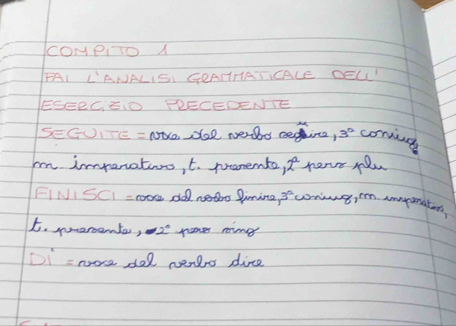 COMPITO 1
FAI L'ANALISI GRAMMATICALE DELL'
ESERCIZIO PRECEDENTE
SEGUITE = voce del verbo seguire, 3° coniug,
m. imperativo, t. presente, 2° pers plu
FINISCI = voce del verbo finire, 3° coniug, m. imperativo,
t. presente, 2° pers sing
DI' = voce del verbo dire